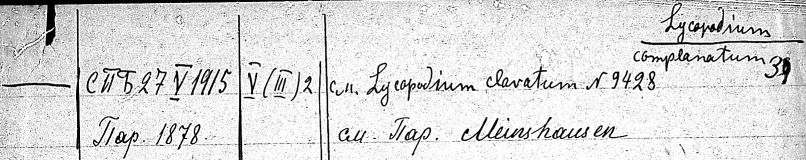 Lycopodium
complanatum
СПБ 27 V 1915 V (III) 2 см. Lycopodium clavatum N 9428
Пар. 1878. см. Пар. Meinshausen